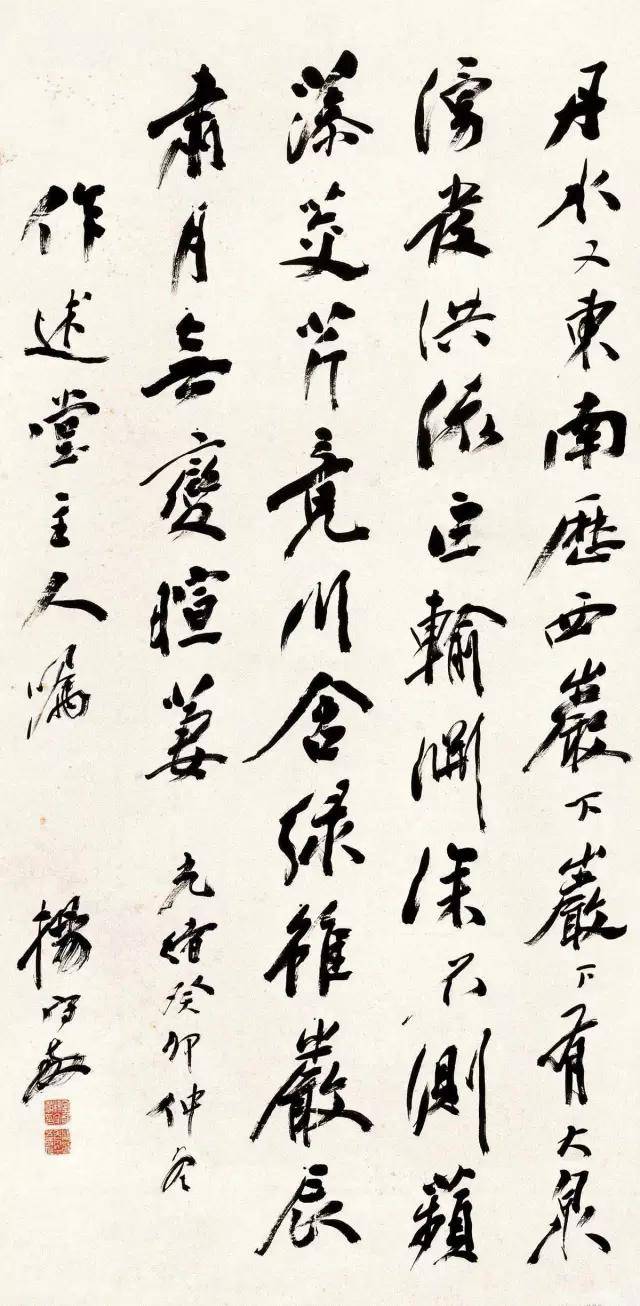 丹水又東南歷西巖下巖下有大泉
湧發洪流巨輸淵深不測蘋
藻茭芹竟川含綠雖嚴辰
肅月無變暄萋 光緒癸卯仲冬
作述堂主人囑 楊守敬